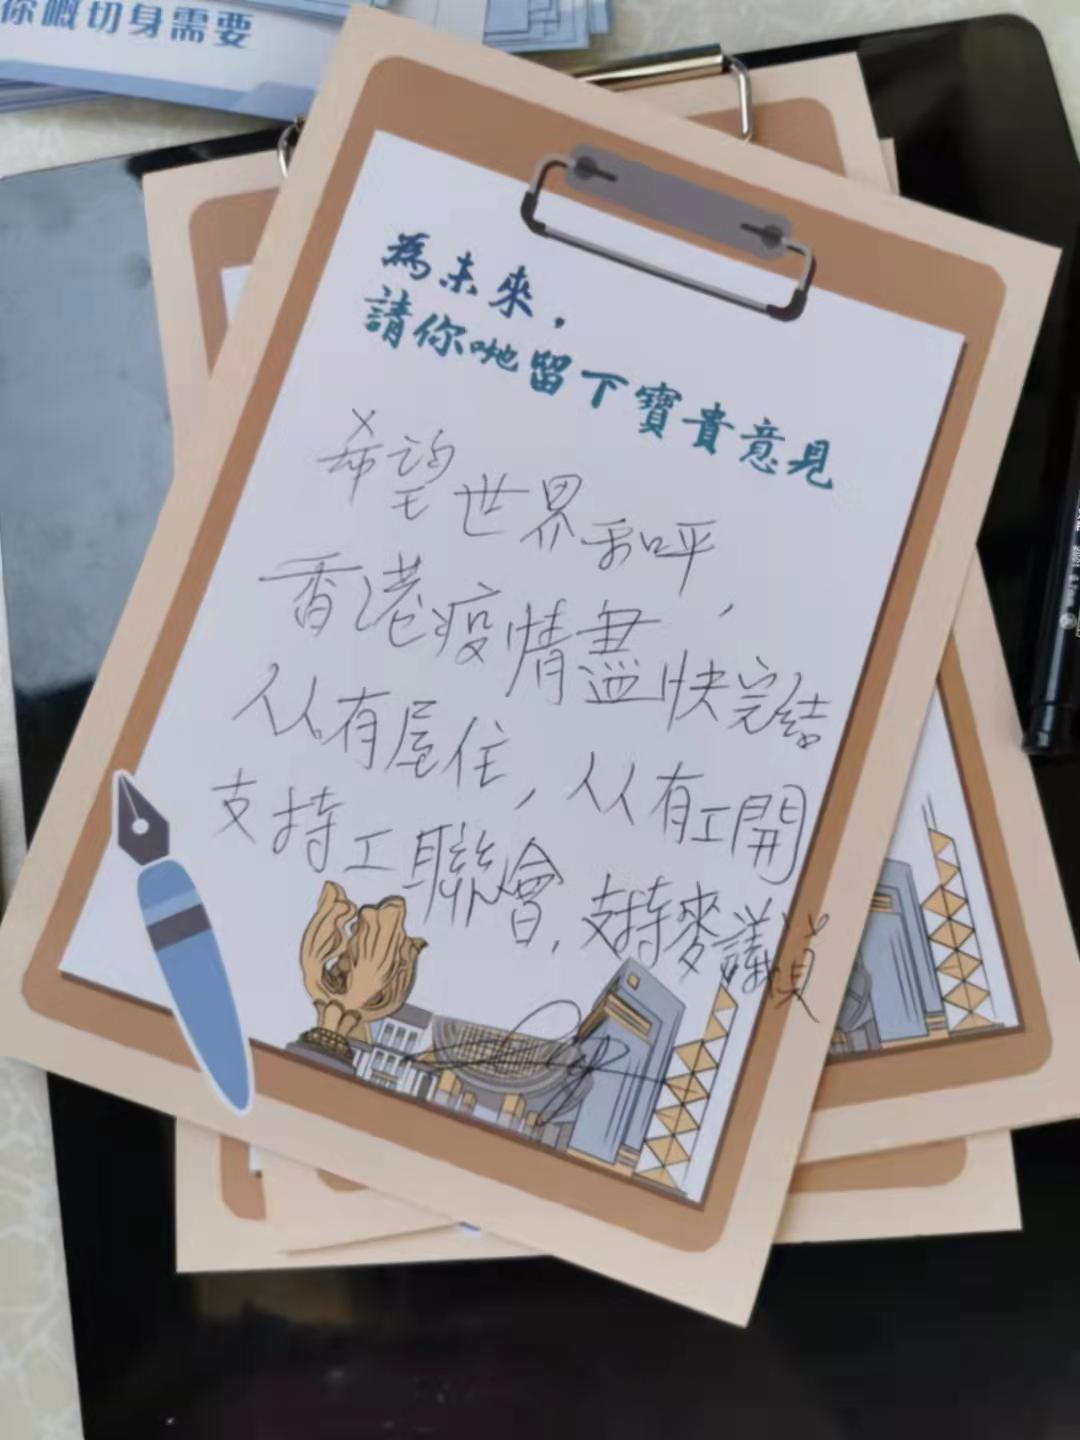 你嘅切身需要
為未來，
請你哋留下寶貴意見
希望世界和呯，
香港疫情盡快完結
人人有屋住，人人有工開
支持工聯會，支持麥議員